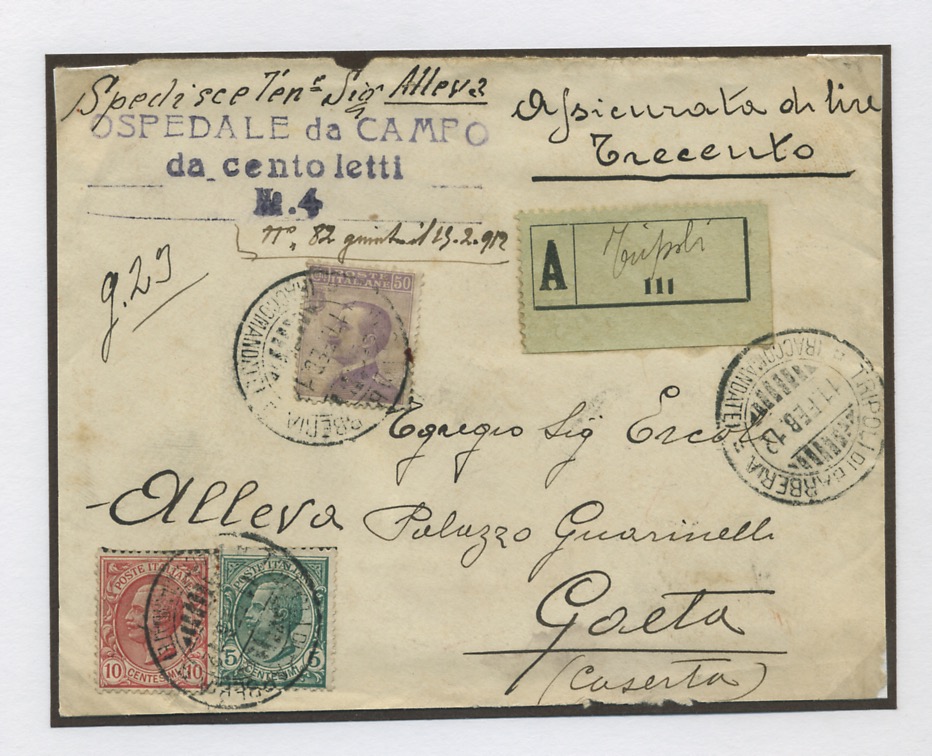 Spedisce Tene Sig Alleva
OSPEDALE da CAMPO
da cento letti
N.4
No. 82 15.2.912
g. 23
Assicurata di lire
Trecento
A
Tripoli
111
POSTE
ITALIANE 50
TRIPOLI DI BARBERIA
(RACCOMANDATE)
17 FEB 12
Egregio Sig Ercole
Alleva Palazzo Guarinelli
Gaeta
(Caserta)
POSTE ITALIANE
10 CENTESIMI 10
POSTE ITALIANE
5 CENTESIMI 5